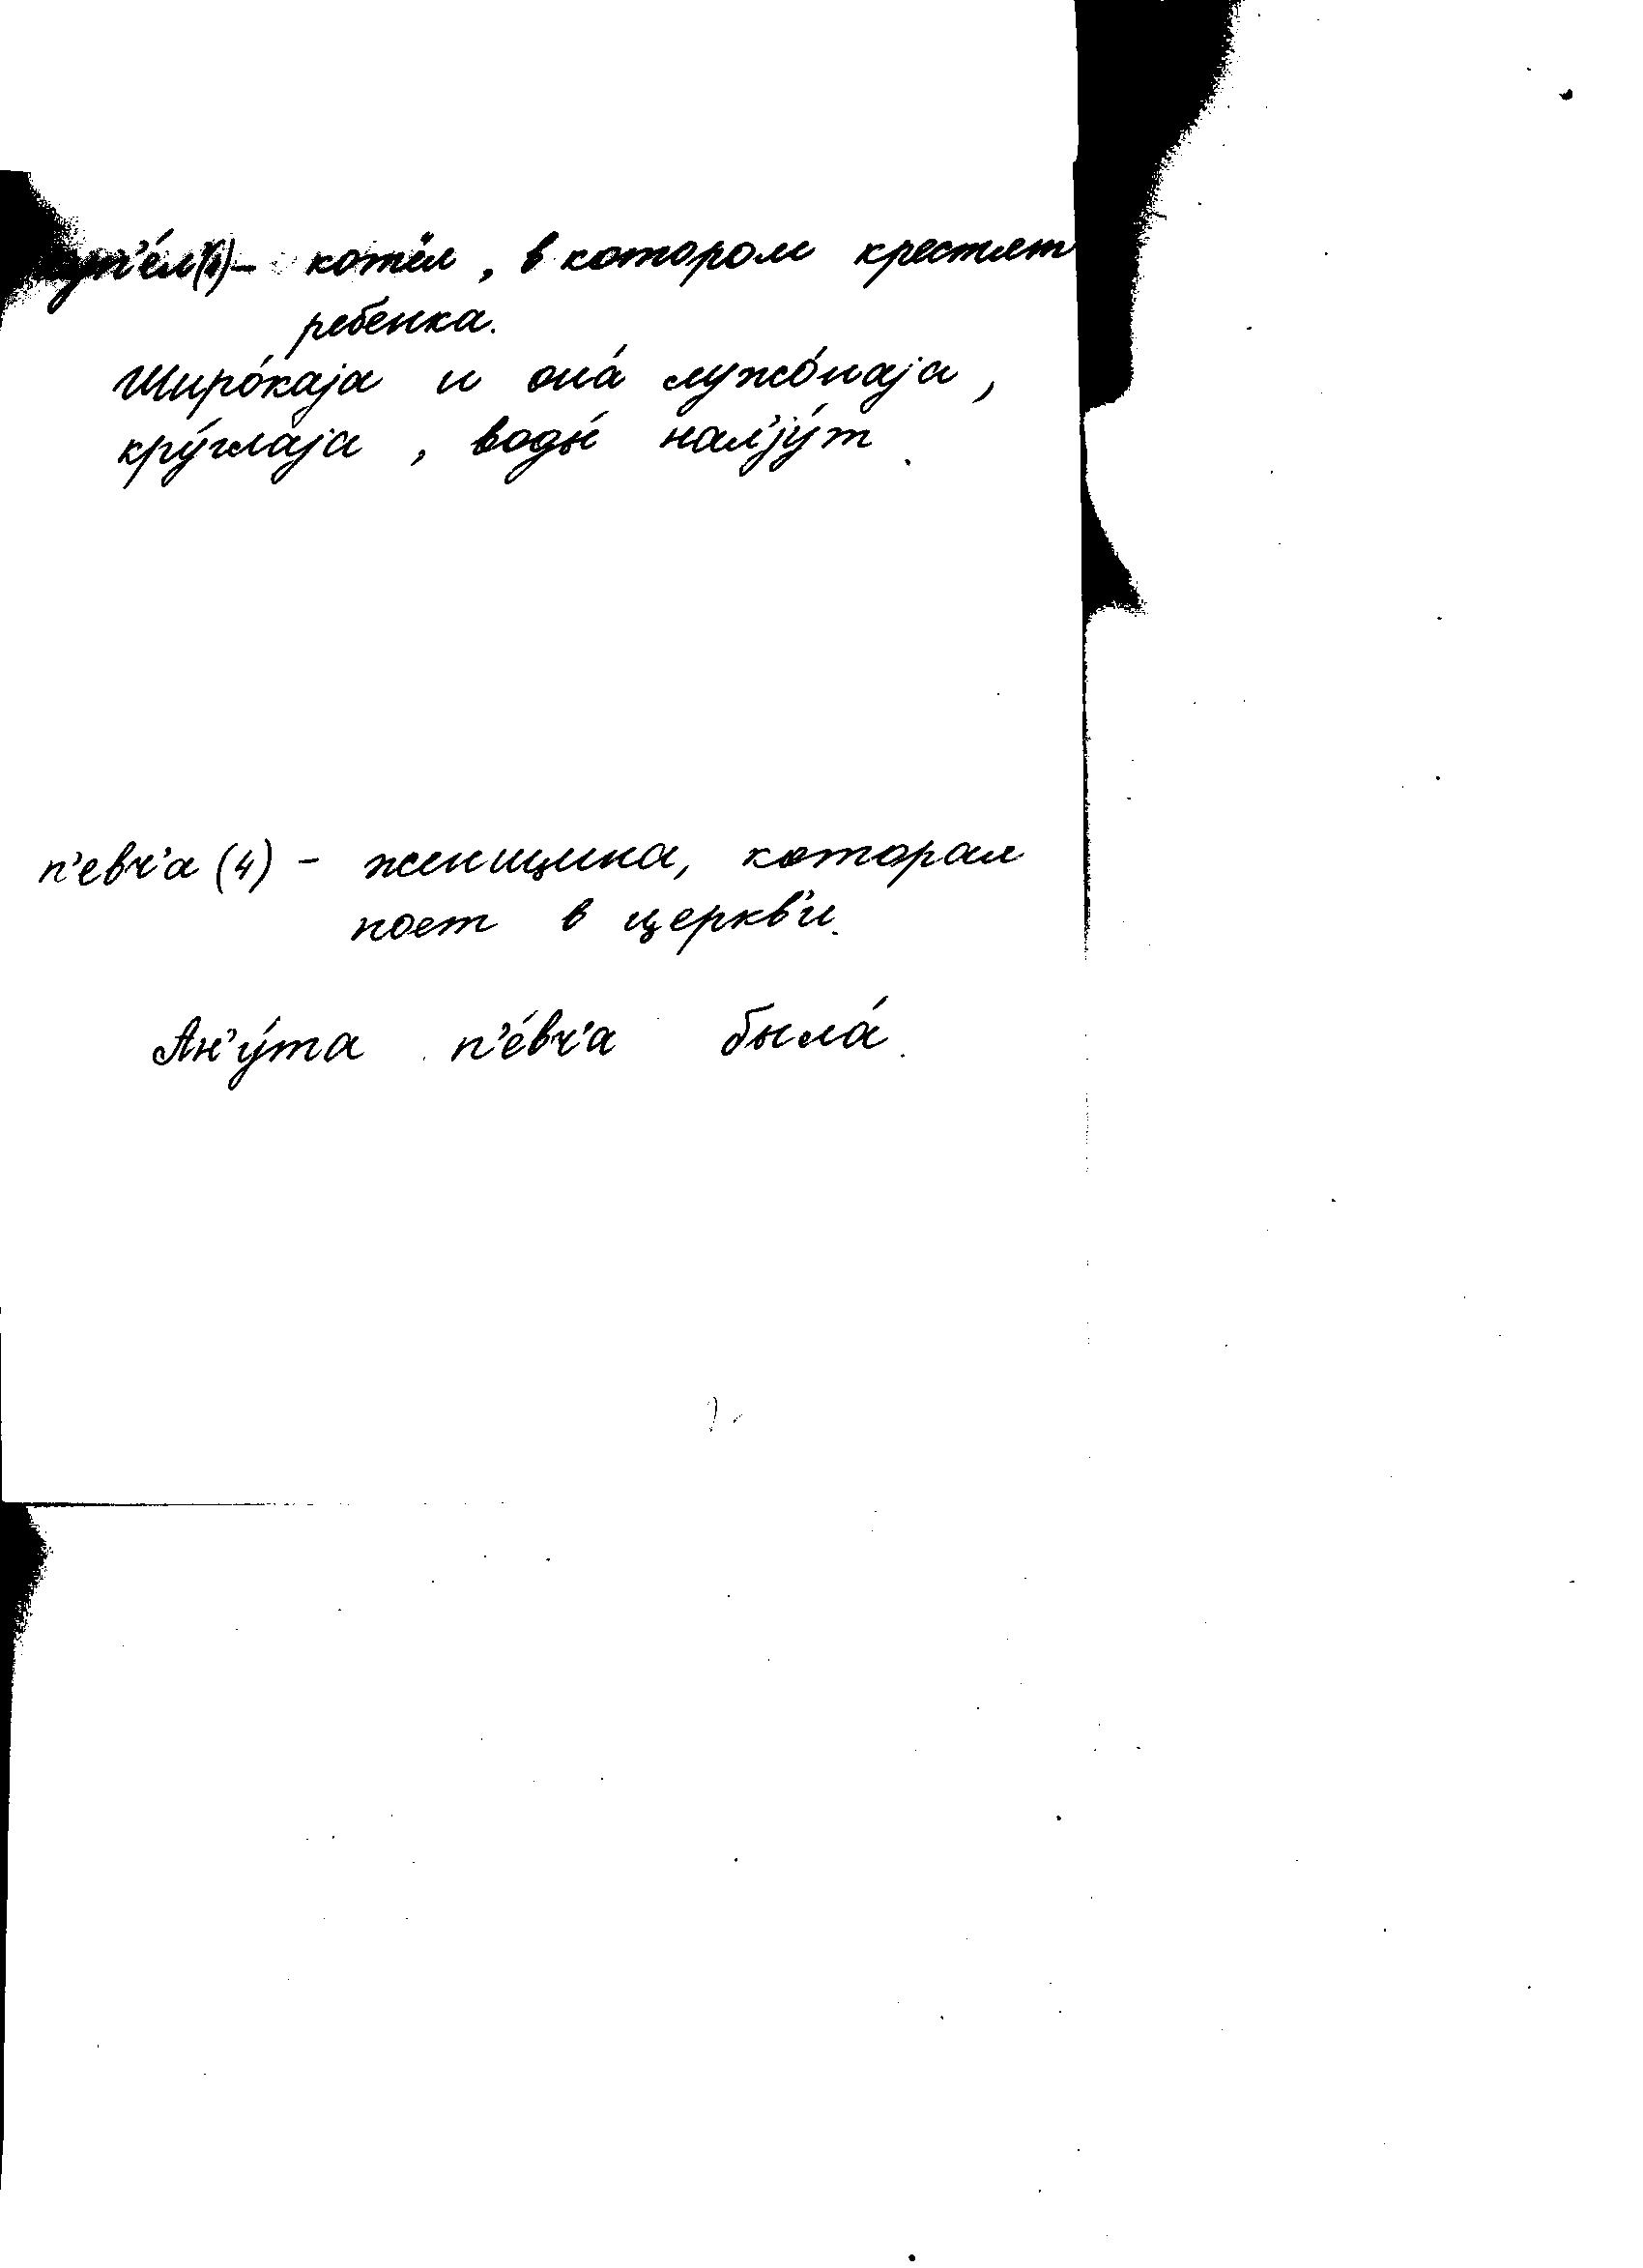 – котёл, в котором крестят
ребенка.
Широ́каjа и она́ лужо́наjа,
кру́глаjа, воды́ нал'jу́т.
п'евч'а (4) – женщина, которая
поет в церкв'и.
Ан'у́та п'е́вч'а была́.